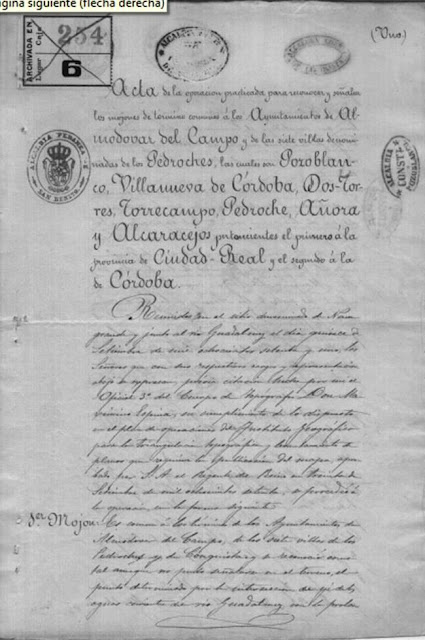 ágina siguiente (flecha derecha)
ARCHIVADA EN
Legajo Caja
254
6
(Uno.)
ALCALDIA
ALCALDIA PEDANEA
SAN BENITO
ALCALDIA CONSTI
Acta de la operacion practicada para reconocer y señalar
los mojones de término comunes á los Ayuntamientos de Al-
modovar del Campo y de las siete villas denomi-
nadas de los Pedroches, las cuales son Pozoblan-
co, Villanueva de Córdoba, Dos-Tor-
res, Torrecampo, Pedroche, Añora
y Alcaracejos pertenecientes el primero á la
provincia de Ciudad-Real y el segundo á la
de Córdoba.
Reunidos en el sitio denominado de Nava
grande y junto al rio Guadalmez el dia quince de
Setiembre de mil ochocientos setenta y uno, los
Señores que con sus respectivos cargos y representacion
abajo se expresan, previa citacion hecha por el
Oficial 3º del Cuerpo de Topógrafos Don
Espina, en cumplimiento de lo dispuesto
en el plan de operaciones del Instituto Geográfico
para la triangulacion topográfica y
planos que requiere la publicacion del mapa, apro-
bado por S. A. el Regente del Reino en treinta de
Setiembre de mil ochocientos setenta, se procedió á
la operacion en la forma siguiente
1.er Mojon. Es comun á los términos de los Ayuntamientos de
Almodovar del Campo, de las siete villas de los
Pedroches y de Conquista; se reconoció como
tal
punto determinado por la interseccion de eje de las
aguas corrientes del rio Guadalmez con la prolon